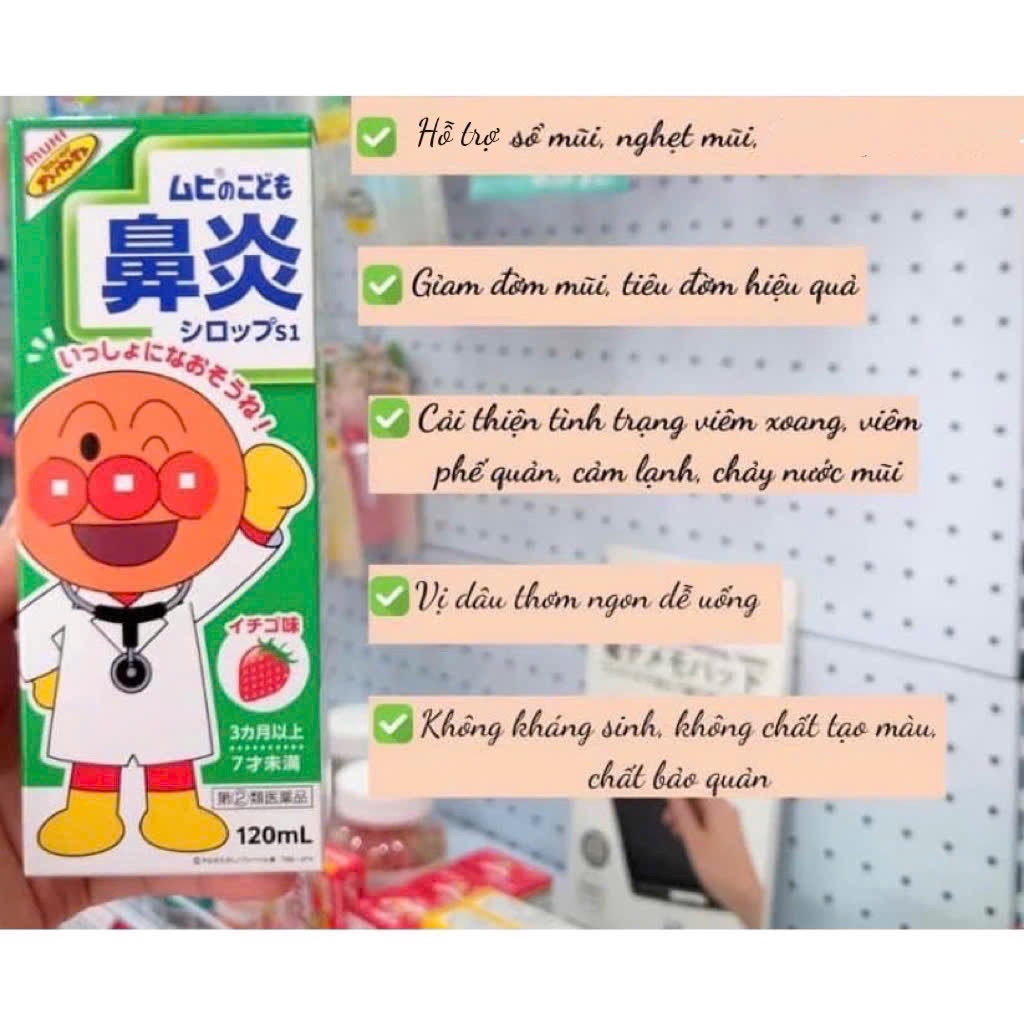 muhi
ムヒ®のこども
鼻炎
シロップS1
いっしょになおそうね!
イチゴ味
3カ月以上
7才未満
指②類医薬品
120mL
Hỗ trợ sổ mũi, nghẹt mũi,
Giảm đờm mũi, tiêu đờm hiệu quả
Cải thiện tình trạng viêm xoang, viêm
phế quản, cảm lạnh, chảy nước mũi
Vị dâu thơm ngon dễ uống
電子メモパッド
Không kháng sinh, không chất tạo màu,
chất bảo quản